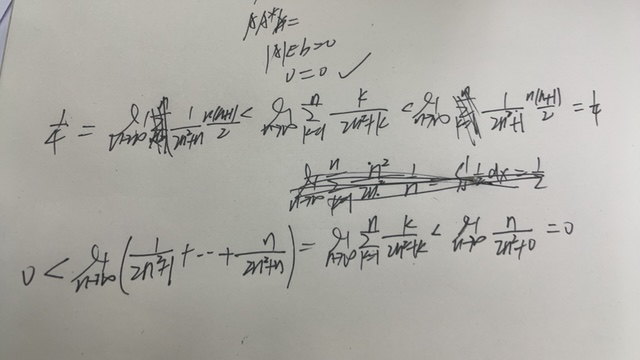 AA*b=
|A|Eb=0
0=0 ✓
1/4 = lim n→∞ 1/(2n²+n) n(n+1)/2 < lim n→∞ ∑ k=1 n k/(2n²+k) < lim n→∞ 1/(2n²+1) n(n+1)/2 = 1/4
0 < lim n→∞ (1/(2n²+1) + ··· + n/(2n²+n)) = lim n→∞ ∑ k=1 n k/(2n²+k) < lim n→∞ n/(2n²+0) = 0